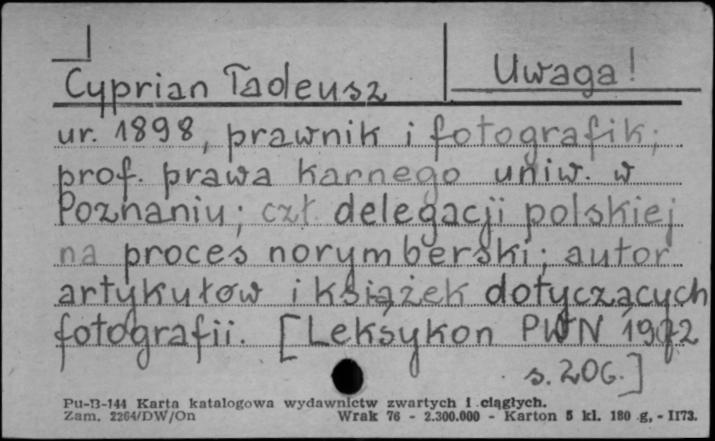 Uwaga!
Cyprian Tadeusz
ur. 1898, prawnik i fotografik;
prof. prawa karnego uniw. w
Poznaniu; czł. delegacji polskiej
na proces norymberski; autor
artykułów i książek dotyczących
fotografii. [Leksykon PWN 1972
s. 206.]
Pu-B-144 Karta katalogowa wydawnictw zwartych i ciągłych.
Zam. 2264/DW/On Wrak 76 - 2.300.000 - Karton 5 kl. 180 g, - II73.